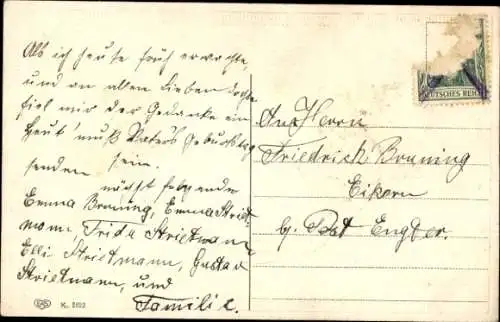 Als ich heute früh erwachte,
und an allen Lieben dachte
fiel mir der Gedanke ein
Heut' muß Vater's Geburtstag
senden sein.
nächst folgende
Emma Bruning, Emma Striet-
mann Frida Strietmann
Elli Strietmann, Gustav
Strietmann, und
Familie.
K. 
DEUTSCHES REICH
An Herrn
Friedrich Bruning
Eikern
bj. Post Engter.